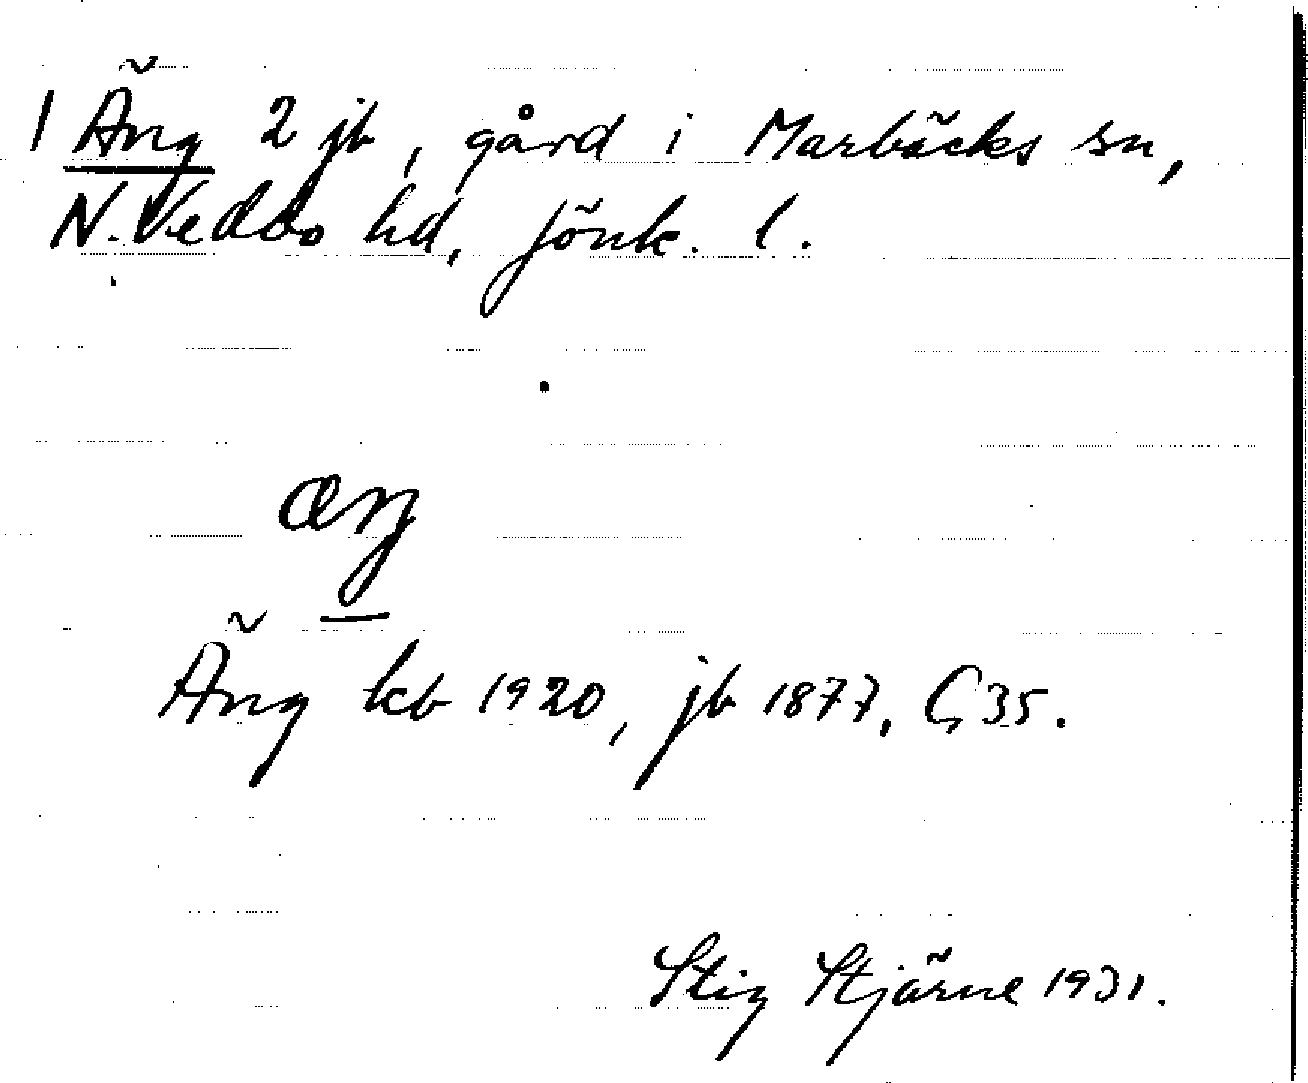 1 Äng 2 jb, gård i Marbäcks sn,
N. Vedbo hd, Jönk. l.
æŋ
Äng kb 1920, jb 1877, G 35.
Stig Stjärne 1931.